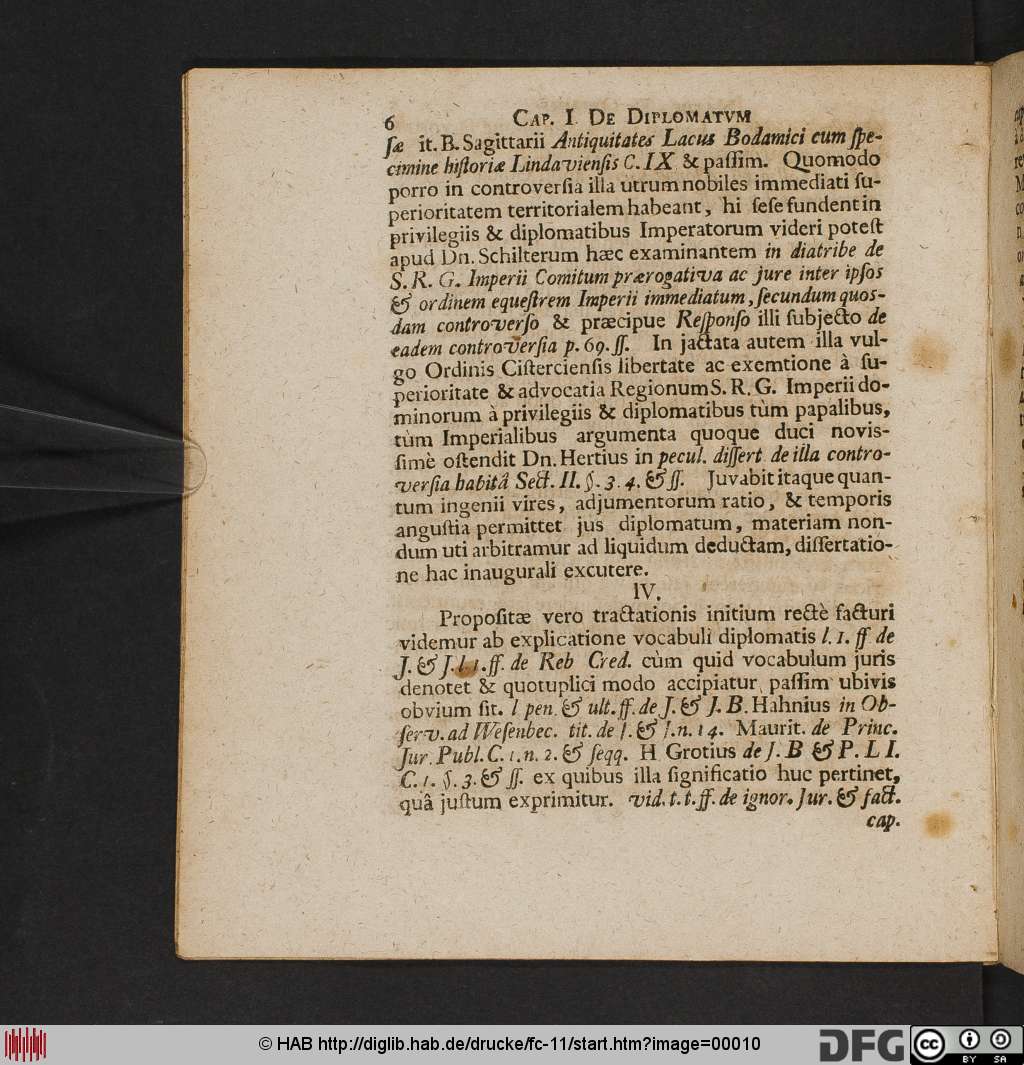 6 CAP. I. DE DIPLOMATVM
ſæ it. B. Sagittarii Antiquitates Lacus Bodamici cum ſpe-
cimine hiſtoriæ Lindavienſis C. IX & paſſim. Quomodo
porro in controverſia illa utrum nobiles immediati ſu-
perioritatem territorialem habeant, hi ſeſe fundent in
privilegiis & diplomatibus Imperatorum videri poteſt
apud Dn. Schilterum hæc examinantem in diatribe de
S. R. G. Imperii Comitum prærogativa ac jure inter ipſos
& ordinem equeſtrem Imperii immediatum, ſecundum quos-
dam controverſo & præcipue Reſponſo illi ſubjecto de
eadem controverſia p. 69. ſſ. In jactata autem illa vul-
go Ordinis Ciſtercienſis libertate ac exemtione à ſu-
perioritate & advocatia Regionum S. R. G. Imperii do-
minorum à privilegiis & diplomatibus tùm papalibus,
tùm Imperialibus argumenta quoque duci novis-
ſimè oſtendit Dn. Hertius in pecul. diſſert. de illa contro-
verſia habitâ Sect. II. §. 3. 4. & ſſ. Juvabit itaque quan-
tum ingenii vires, adjumentorum ratio, & temporis
anguſtia permittet jus diplomatum, materiam non-
dum uti arbitramur ad liquidum deductam, diſſertatio-
ne hac inaugurali excutere.
IV.
Propoſitæ vero tractationis initium rectè facturi
videmur ab explicatione vocabuli diplomatis l. 1. ff de
J. & J. l. 1. ff. de Reb Cred. cùm quid vocabulum juris
denotet & quotuplici modo accipiatur paſſim ubivis
obvium ſit. l pen. & ult. ff. de J. & J. B. Hahnius in Ob-
ſerv. ad Weſenbec. tit. de J. & J. n. 14. Maurit. de Princ.
Jur. Publ. C. 1. n. 2. & ſeqq. H Grotius de J. B & P. L I.
C. 1. §. 3. & ſſ. ex quibus illa ſignificatio huc pertinet,
quâ juſtum exprimitur. vid. t. t. ff. de ignor. Jur. & fact.
cap.
© HAB http://diglib.hab.de/drucke/fc-11/start.htm?image=00010
DFG
cc BY SA